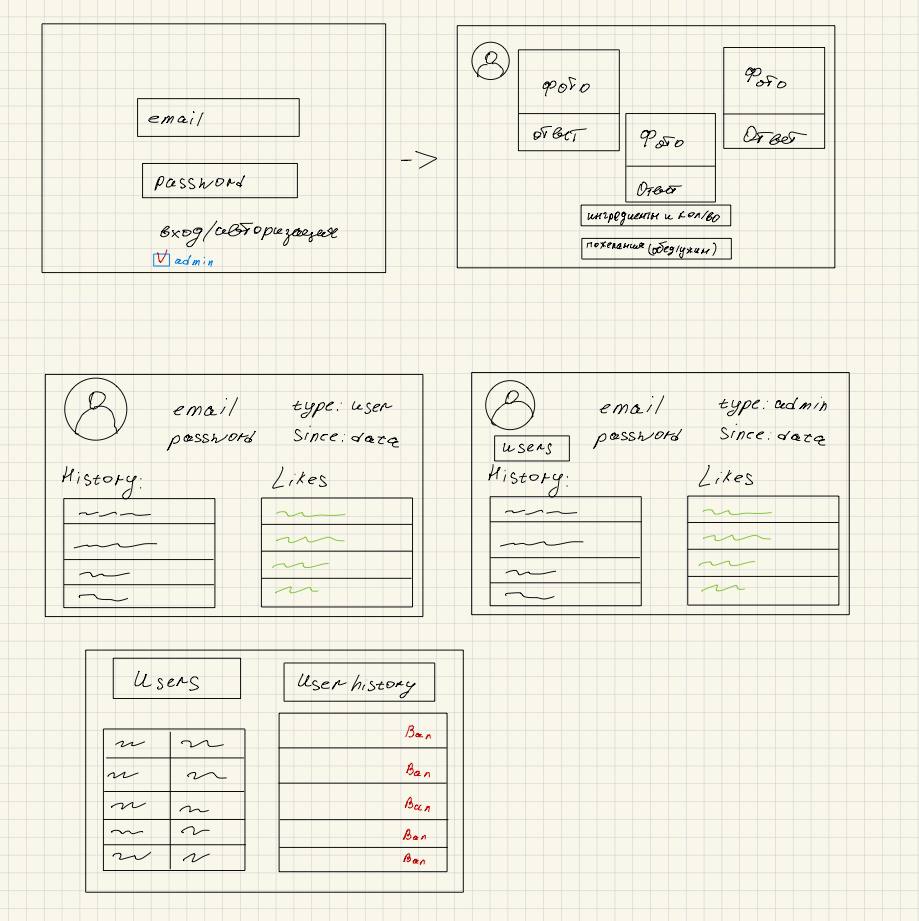 email
password
вход/авторизация
admin
фото
ответ
Фото
Ответ
Фото
Ответ
ингредиенты и кол/во
пожелания (обед/ужин)
email
type: user
password
Since: data
History:
Likes
email
type: admin
users
password
Since: data
History:
Likes
Users
User history
Ban
Ban
Ban
Ban
Ban